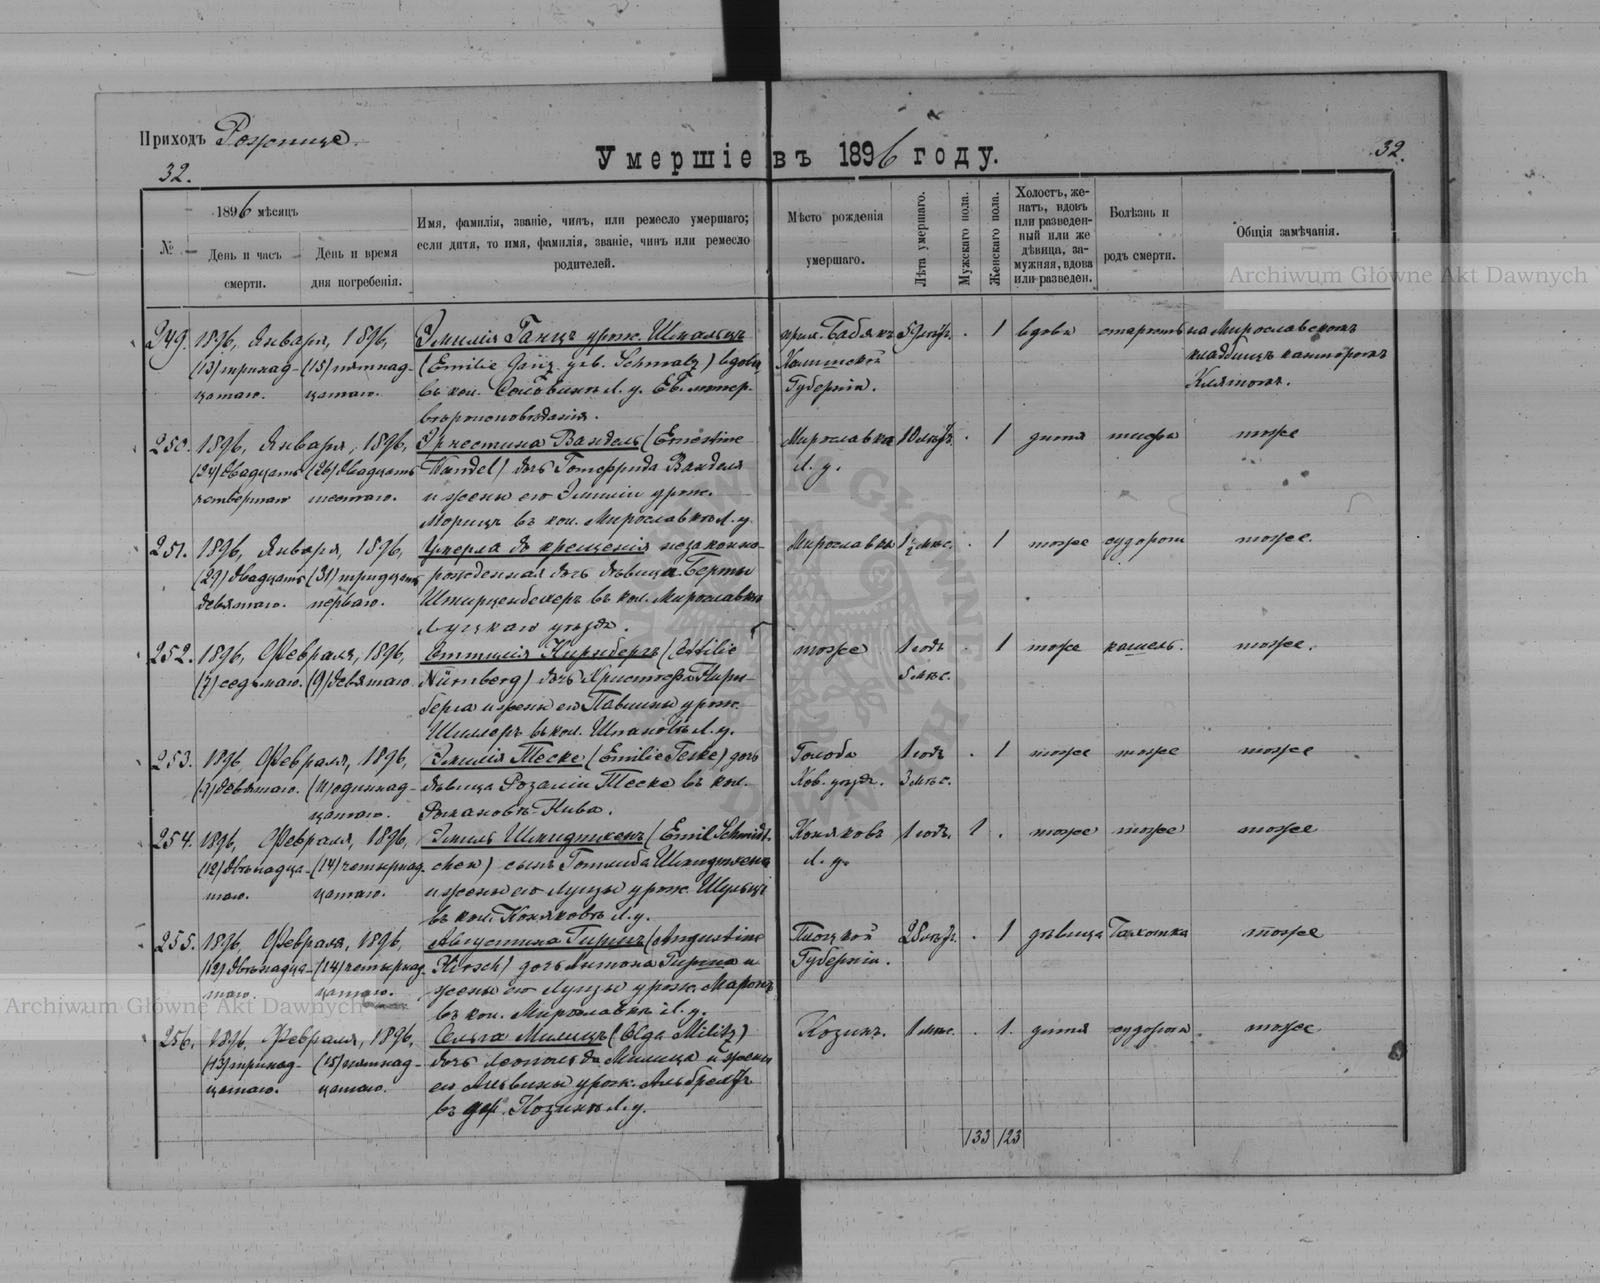 Приходъ Рожище.
32.
Умершіе въ 1896 году.
32.
№
1896 мѣсяцъ
День и часъ смерти.
День и время дня погребенія.
Имя, фамилія, званіе, чинъ, или ремесло умершаго;
если дитя, то имя, фамилія, званіе, чинъ или ремесло
родителей.
Мѣсто рожденія
умершаго.
Лѣта умершаго.
Мужскаго пола.
Женскаго пола.
Холостъ, же-
натъ, вдовъ
или разведен-
ный или же
дѣвица, за-
мужняя, вдова
или разведен.
Болѣзнь и
родъ смерти.
Общія замѣчанія.
Archiwum Główne Akt Dawnych
249. 1896, Января, 1896, Эмилія Ганцъ урож. Шмальцъ 59 лѣтъ. . 1 вдова старость на Мирославскомъ
(13) тринад- (15) пятнад- (Emilie Gänz geb. Schmalz) вдова Калишской кладбищѣ канторомъ
цатаго. цатаго. въ кол. Л. у. Ев. лютер. Губерніи.
вѣроисповѣданія.
250. 1896, Января, 1896, Эрнестина Вандель (Ernestine Мирославка 10 лѣтъ . 1 дитя тифъ тоже
(24) двадцать (26) двадцать Wandel) дочь Готфрида Ванделя Л. у.
четвертаго шестаго. и жены его Эмиліи урож.
Морицъ въ кол. Мирославкѣ Л. у.
251. 1896, Января, 1896, Умерла до крещенія незаконно- Мирославка 1/2 мѣс. . 1 тоже судороги тоже.
(29) двадцать (31) тридцать рожденная дочь дѣвицы Берты
девятаго. перваго. въ кол. Мирославкѣ
Луцкаго уѣзда.
252. 1896, Февраля, 1896, Оттилія Нирнбергъ (Ottilie тоже 1 годъ . 1 тоже кашель. тоже.
(7) седьмаго. (9) девятаго Nürnberg) дочь Христофа Нирн- 5 мѣс.
берга и жены его Павлины урож.
Шиллеръ въ кол. Л. у.
253. 1896 Февраля, 1896, Эмилія Теске (Emilie Teske) дочь Голоба 1 годъ . 1 тоже тоже тоже
(9) девятаго. (11) одиннад- дѣвицы Розаліи Теске въ кол. Ков. уѣзда. 3 мѣс.
цатаго.
254. 1896, Февраля, 1896, Эмиль Шмидтхенъ (Emil Schmidt- 1 годъ. 1 . тоже тоже тоже
(12) двѣнадца- (14) четырнад- chen) сынъ Готлиба Шмидтхена Л. у.
таго. цатаго. и жены его Луизы урож. Шульцъ
въ кол. Л. у.
255. 1896, Февраля, 1896, Августина Гиршъ (Augustine Плоцкой . 1 дѣвица тоже
(12) двѣнадца- (14) четырнад- Hirsch) дочь Антона Гирша и Губерніи.
таго. цатаго. жены его Луизы урож.
въ кол. Мирославкѣ Л. у.
Archiwum Główne Akt Dawnych
256. 1896, Февраля, 1896, Ольга Милицъ (Olga Militz) Козинъ. 1 мѣс. . 1. дитя судороги тоже
(13) тринад- (15) пятнад- дочь Леопольда Милица и жены
цатаго. цатаго. его Альвины урож. Альбрехтъ
въ дер. Козинѣ Л. у.
133 123